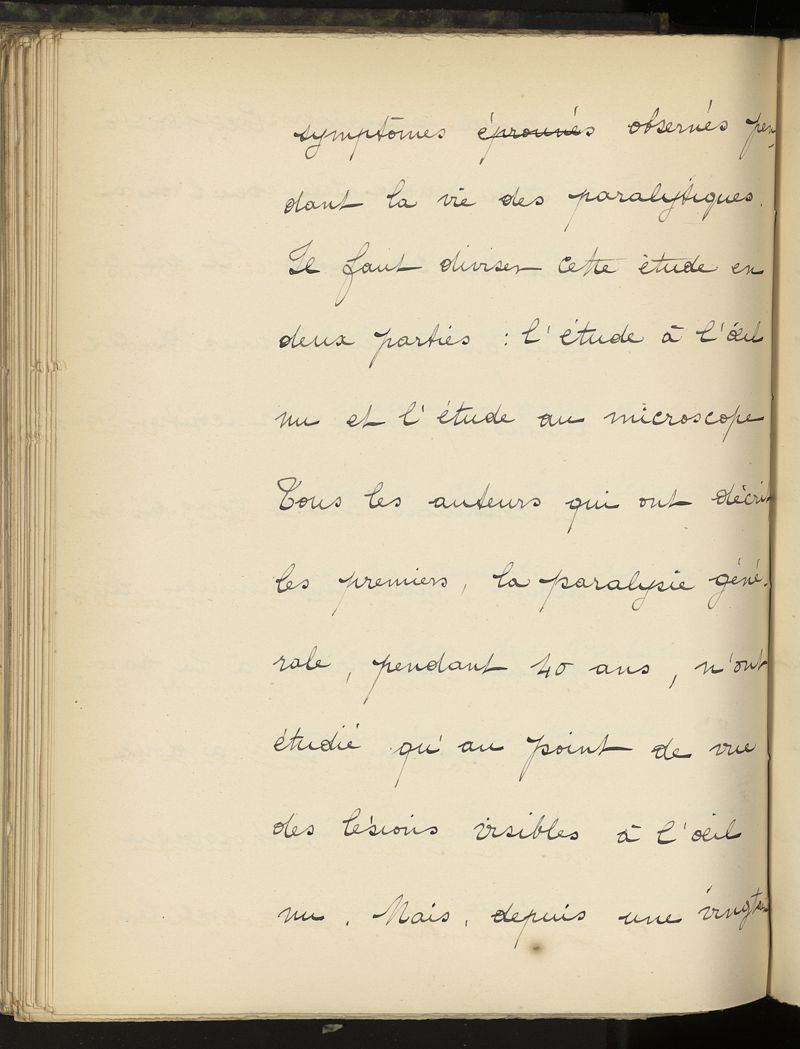 symptômes éprouvés observés pen-
dant la vie des paralytiques.
Il faut diviser cette étude en
deux parties : l'étude à l'œil
nu et l'étude au microscope
Tous les auteurs qui ont décrit
les premiers, la paralysie géné-
rale, pendant 40 ans, n'ont
étudié qu'au point de vue
des lésions visibles à l'œil
nu. Mais, depuis une vingtain